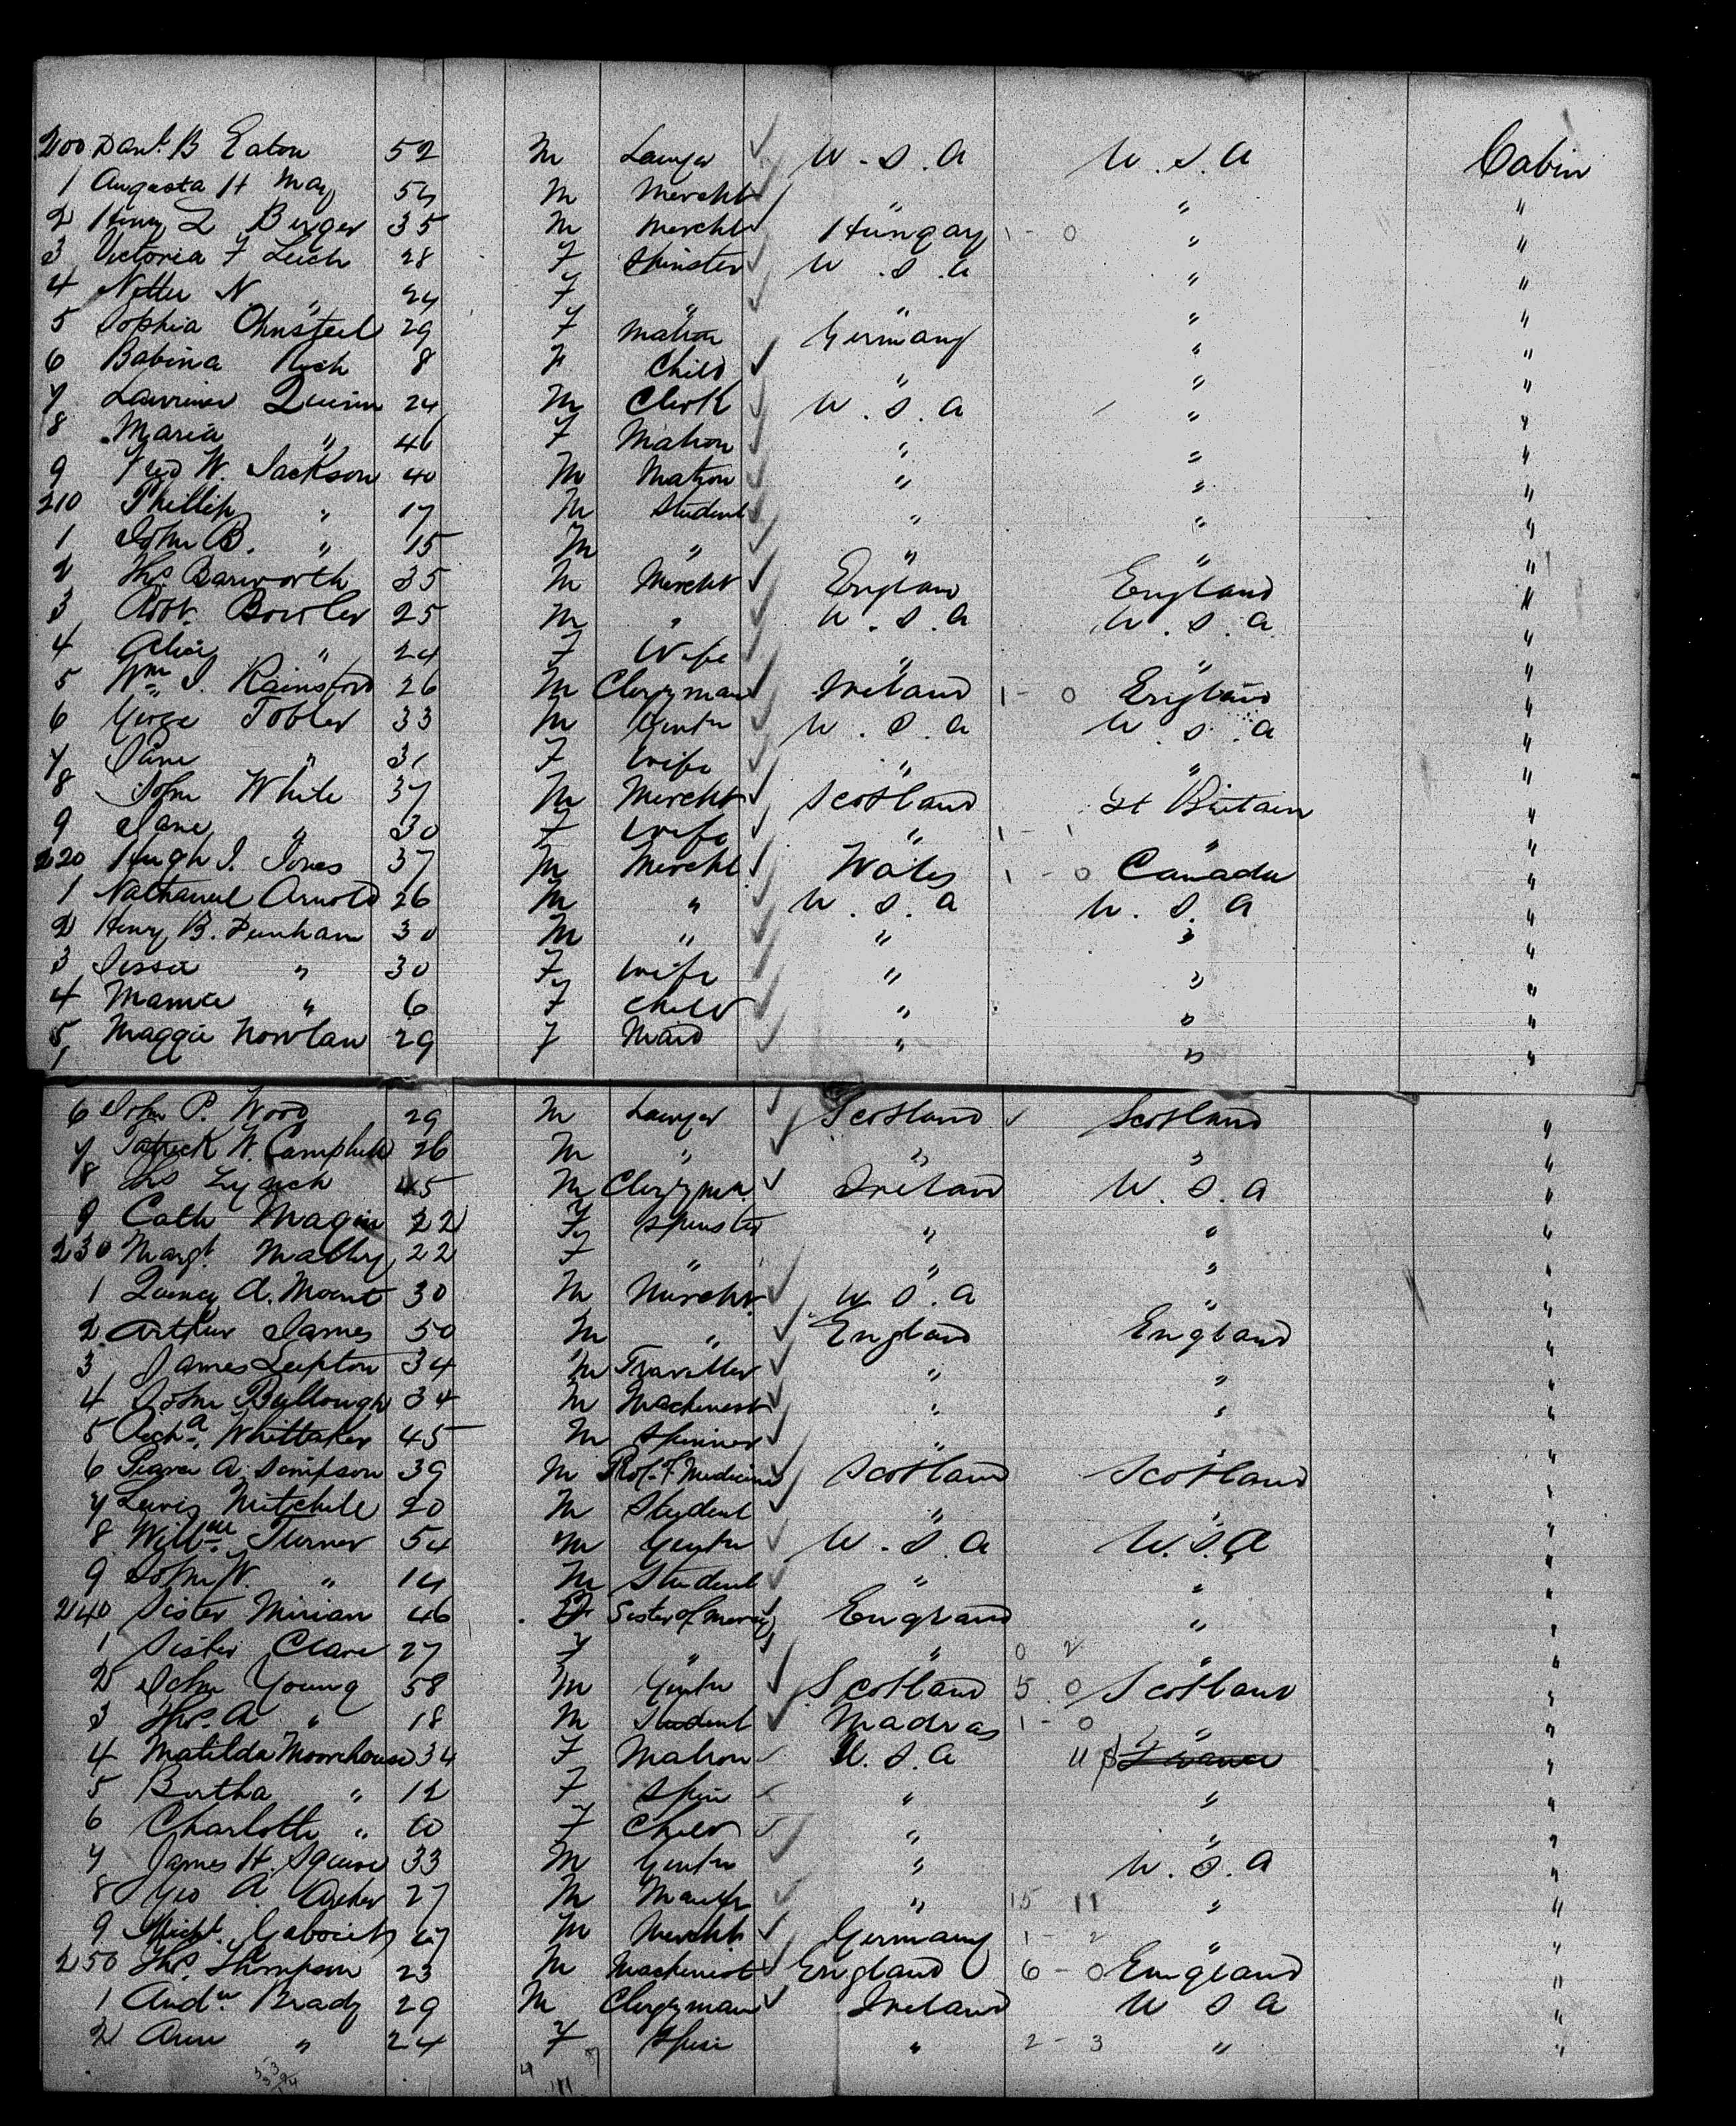 200 Danl. B Eaton 52 M Lawyer U.S.A U.S.A Cabin
1 Augusta H May 54 M Mercht " " "
2 Henry L Berger 35 M Mercht Hungary 1 - 0 " "
3 Victoria F Leich 28 F Spinster U.S.A " "
4 N. " 24 F " " " "
5 Sophia 29 F Matron Germany " "
6 Babina Rich 8 F Child " " "
7 Quinn 24 M Clerk U.S.A " "
8 Maria " 46 F Matron " " "
9 Fred W. Jackson 40 M Matron " " "
210 Phillip " 17 M Student " " "
1 John B. " 15 M " " " "
2 Ths. Barworth 35 M Mercht Englan England "
3 Robt. Bowler 25 M " U.S.A U.S.A "
4 Alice " 24 F Wife " " "
5 Wm. J. Rainsford 26 M Clergyman Ireland 1 - 0 England "
6 George Tobler 33 M Gentn U.S.A U.S.A "
7 Jane " 31 F Wife " " "
8 John White 37 M Mercht Scotland Gt Britain "
9 Jane " 30 F Wife " 1 - 1 " "
220 Hugh J. Jones 37 M Mercht Wales 1 - 0 Canada "
1 Nathaniel Arnold 26 M " U.S.A U.S.A "
2 Henry B. Dunham 30 M " " " "
3 Jessie " 30 F Wife " " "
4 Mamie " 6 F Child " " "
5 Maggie Nowlan 29 F Maid " " "
6 John P. Wood 29 M Lawyer Scotland Scotland "
7 Patrick W. Campbell 26 M " " " "
8 Ths Lynch 45 M Clergymn Ireland U.S.A "
9 Cath Magin 22 F Spinster " " "
230 Margt. Malley 22 F " " " "
1 Quincy A. Mount 30 M Mercht U.S.A " "
2 Arthur James 50 M " England England "
3 James Lupton 34 M Traveller " " "
4 John Bullough 34 M Machinest " " "
5 Richd. Whittaker 45 M Spinner " " "
6 A. Simpson 39 M Prof. of Medicine Scotland Scotland "
7 Lewis Mitchell 20 M Student " " "
8 Willm Turner 54 M Gentn U.S.A U.S.A "
9 John W. " 14 M Student " " "
240 Sister Mirian 46 F Sister of Mercy England " "
1 Sister Clare 27 F " " 0 2 " "
2 John Young 58 M Gentn Scotland 5 0 Scotland "
3 Ths. A " 18 M Student Madras 1 - 0 " "
4 Matilda Moorehouse 34 F Matron U.S.A U S France "
5 Bertha " 12 F Spin " " "
6 Charlotte " 10 F Child " " "
7 James H. Squire 33 M Gentn " U.S.A "
8 Geo A. Archer 27 M " 15 11 " "
9 47 M Mercht Germany 1 - 2 " "
250 Ths. Thompson 23 M Machinest England 6 - 0 England "
1 Andw. Brady 29 M Clergyman Ireland U S A "
2 Ann " 24 F Spin " 2 - 3 " "